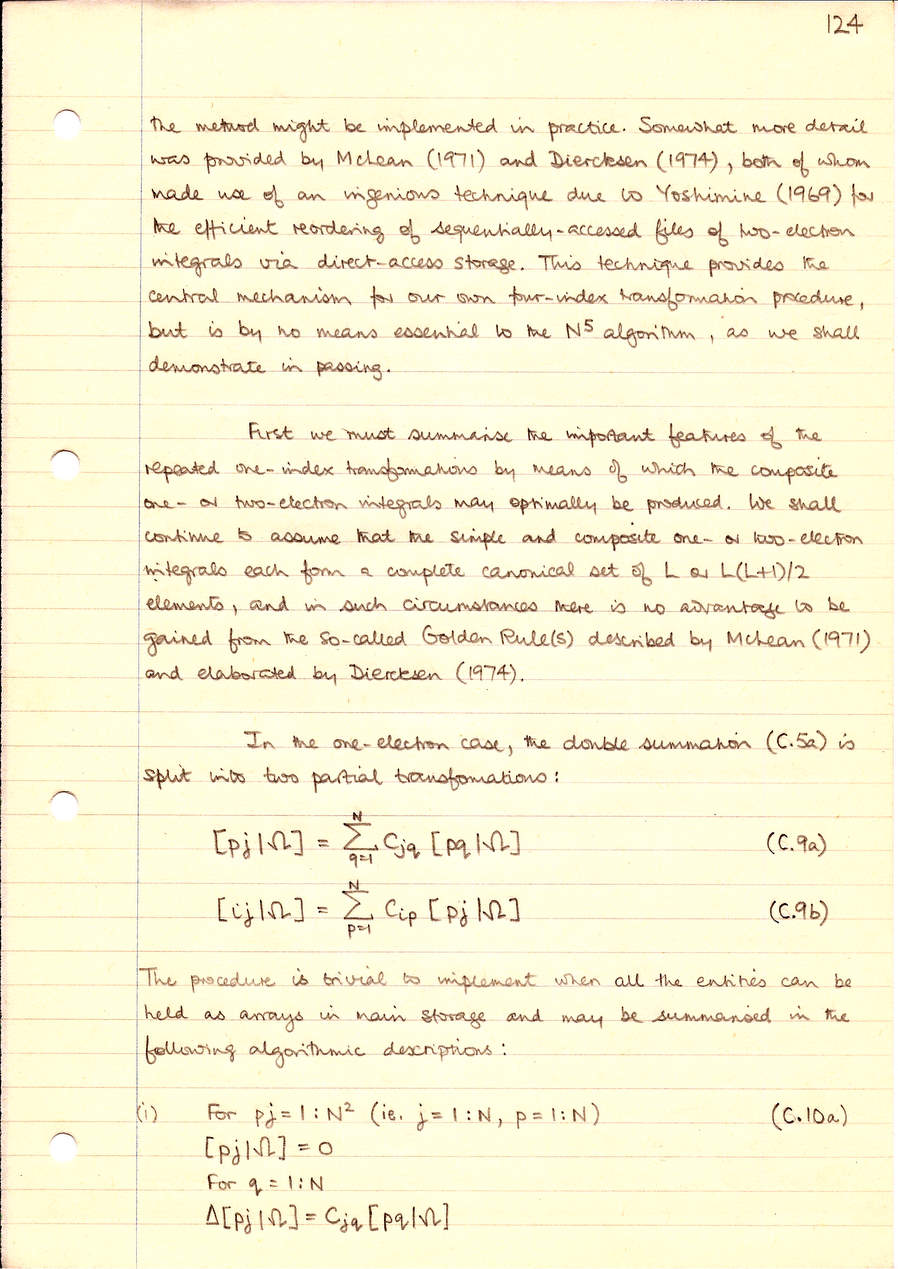 124
the method might be implemented in practice. Somewhat more detail
was provided by McLean (1971) and Diercksen (1974), both of whom
made use of an ingenious technique due to Yoshimine (1969) for
the efficient reordering of sequentially-accessed files of two-electron
integrals via direct-access storage. This technique provides the
central mechanism for our own four-index transformation procedure,
but is by no means essential to the N⁵ algorithm, as we shall
demonstrate in passing.
First we must summarise the important features of the
repeated one-index transformations by means of which the composite
one- or two-electron integrals may optimally be produced. We shall
continue to assume that the simple and composite one- or two-electron
integrals each form a complete canonical set of L or L(L+1)/2
elements, and in such circumstances there is no advantage to be
gained from the so-called Golden Rule(s) described by McLean (1971)
and elaborated by Diercksen (1974).
In the one-electron case, the double summation (C.5a) is
split into two partial transfomations:
[pj|Ω] = ∑_{q=1}^{N} C_{jq} [pq|Ω] (C.9a)
[ij|Ω] = ∑_{p=1}^{N} C_{ip} [pj|Ω] (C.9b)
The procedure is trivial to implement when all the entities can be
held as arrays in main storage and may be summarised in the
following algorithmic descriptions:
(i) For pj = 1:N² (ie. j = 1:N, p = 1:N) (C.10a)
[pj|Ω] = 0
For q = 1:N
Δ[pj|Ω] = C_{jq} [pq|Ω]